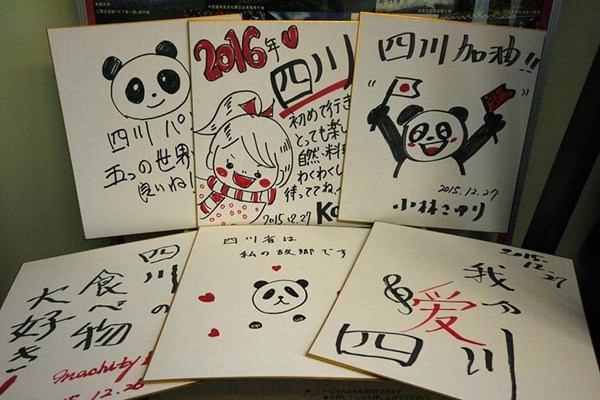 四川 パン
五つの世界
良いね!
2016年
四川
初めて行き
とっても楽し
自然・料理
わくわくし
待っててね
2015.12.27
Ko
四川加油!!
2015.12.27
小林さゆり
四川の
食べ物
大好き
machiby
15.12.26
四川省は
私の故郷です
2015.
12.27
我 愛
四川